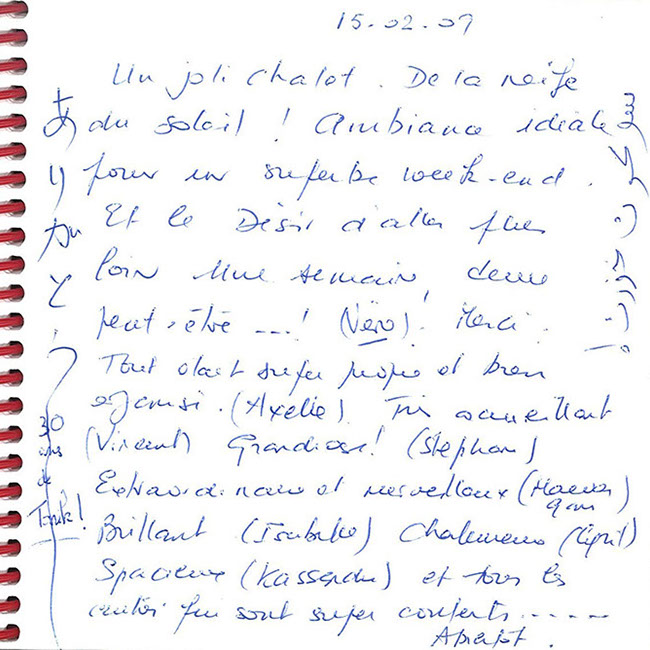 15.02.09
Un joli chalet. De la neige
du soleil ! Ambiance idéale
pour un superbe week-end.
Et le Désir d'aller plus
loin Une semaine, deux
peut-être ---! (Véro). Merci.
Tout était super propre et bien
organisé. (Axelle). Très accueillant
(Vincent) Grandiose! (Stephan)
Extraordinaire et merveilleux (Maeva)
9 ans
Brillant (Isabelle) Chaleureux (Cyril)
Spacieux (Kassandra) et tous les
autres qui sont super contents.....
30
ans
de